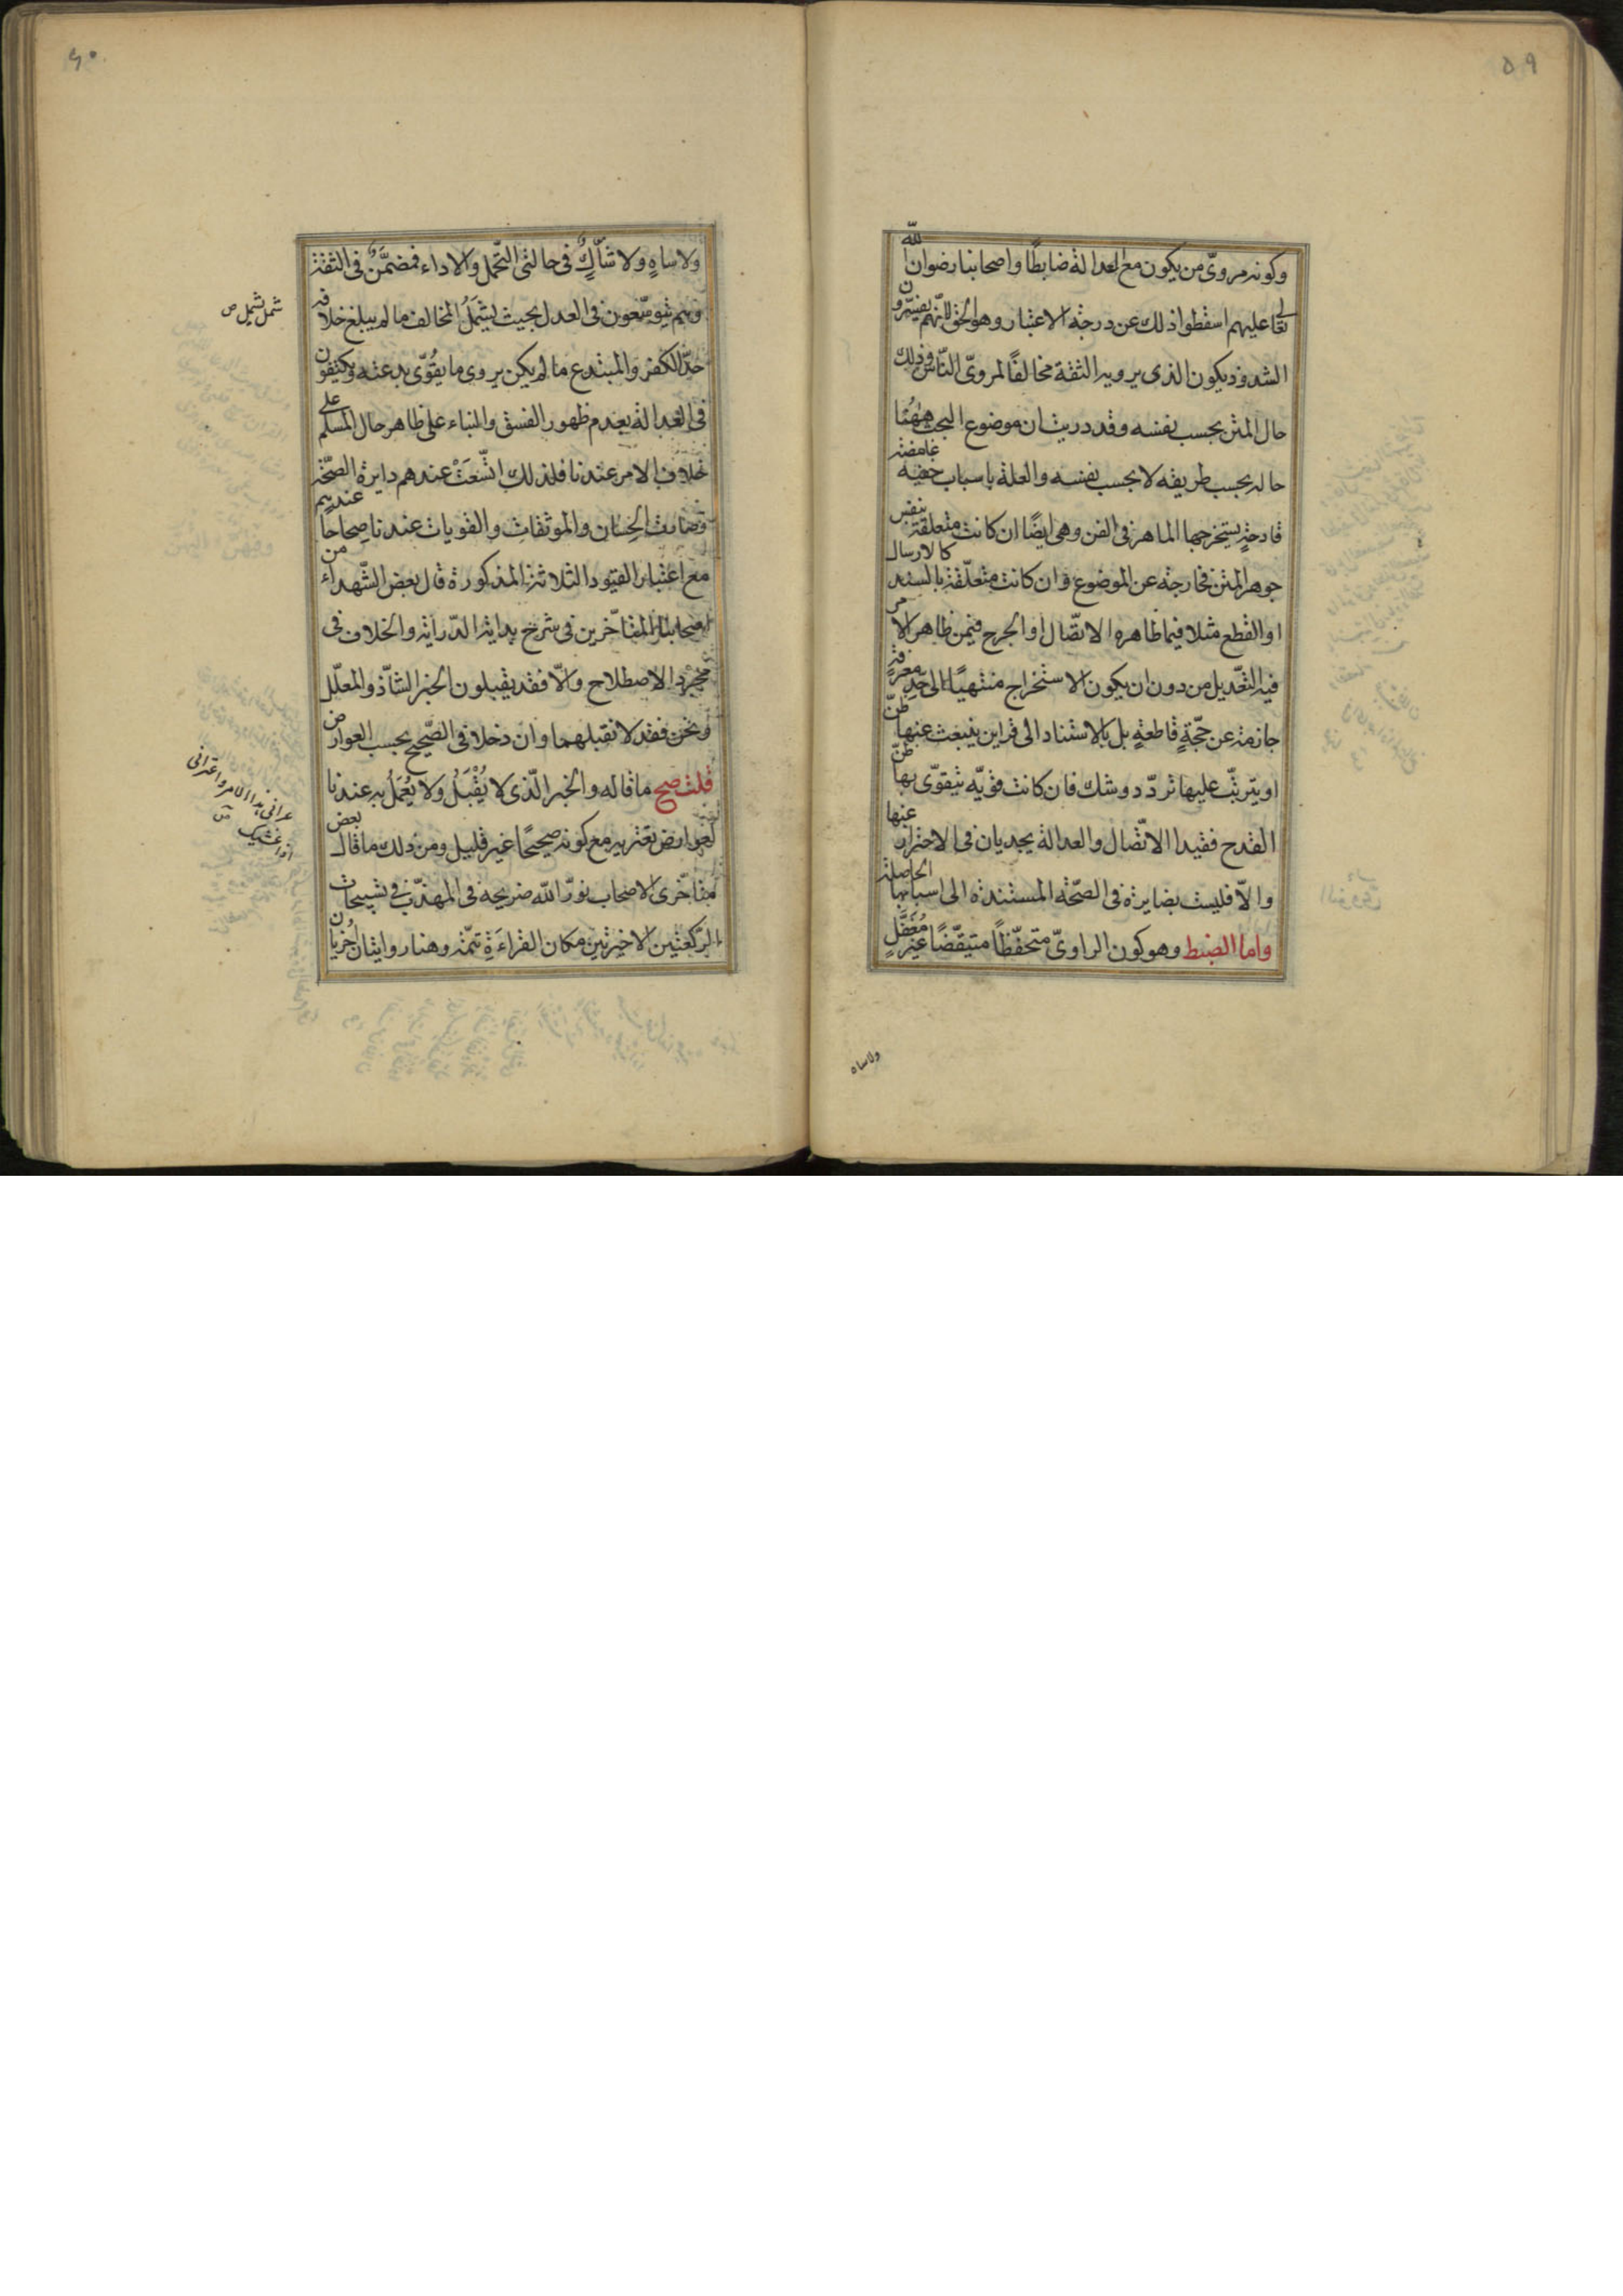 ٥٩
وكونه مروىّ من يكون مع العدالة ضابطًا واصحابنا رضوان الله
تعالى عليهم اسقطوا ذلك عن درجة الاعتبار وهو الحق لانهم يفسّرون
الشذوذ بكون الذى يرويه الثقة مخالفًا لمروىّ النّاس وذلك
حال المتن بحسب نفسه وقد دريت ان موضوع البحث ههُنا
حاله بحسب طريقه لا بحسب نفسه والعلة باسباب خفيه غامضة
قادحةٍ يستخرجها الماهر فى الفن وهى ايضًا ان كانت متعلقة بنفس
جوهر المتن فخارجة عن الموضوع وان كانت متعلّقة بالسند كالارسال
او القطع مثلا فيما ظاهره الاتّصال او الجرح فيمن ظاهر الامر
فيه التعّديل من دون ان يكون الاستخراج منتهيًا الى حّدِ معرفةٍ
جازمة عن حجّةٍ قاطعةٍ بل بالاستناد الى قراين ينبعث عنها ظنّ
او يترتّب عليها تردّد وشك فان كانت قويّه يتقوّى بها ظنّ
القدح فقيدا الاتّصال والعدالة يجديان فى الاحتراز عنها
والاّ فليست بضايرة فى الصّحّة المستندة الى اسبابها الحاصلة
واما الضبط وهو كون الراوىّ متحفّظاً متيقّضًا غير مُغَفَّلٍ
ولاساه
٦٠
ولاساهٍ ولا شاّكٍ فى حالتى التحّمل والاداء فمضمَّن فى الثقة
وهم يتوسّعون فى العدل بحيث يشمَلُ المخالف ما لم يبلغ خلافه
حدّ الكفر والمبتدع ما لم يكن يروى ما يقُوّى بدعته ويكتفون
فى العدالة بعدم ظهور الفسق والبناء على ظاهر حال المسلم على
خلاف الامر عندنا فلذلك اتّسَعَتْ عندهم دايرة الصّحّة
وصارت الحِسان والموثقات والقويات عندنا صِحاحًا عندهم
مع اعتبار القيود الثلاثة المذكورة قال بعض الشّهداء من
اصحابنا المتأخّرين فى شرح بداية الدّراية والخلاف فى
مجرّد الاصطلاح والاّ فقد يقبلون الخبر الشاّذ والمعلّل
ونحن فقد لا نقبلهما وان دخلا فى الصّحيح بحسب العوارض
قلت صح ما قاله والخبر الّذى لا يُقْبَلُ ولا يُعْمَلُ به عندنا
لعوارض تعتريه مع كونه صحيحًا غير قليل ومن ذلك ما قال بعض
متأخّرى الاصحاب نوّر الله ضريحه فى المهذّب فى تسبيحات
الركعتين الاخيرتين مكان القراءَةِ تتمّة وهنا روايتان اُخريان
شمل يشمل ص
عرانى هذا الامر واعترانى
اذا غشيك